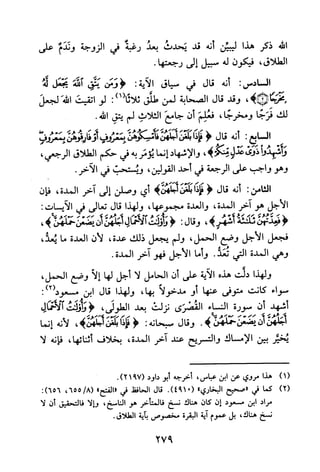 الله ذكر هذا ليبيّن أنه قد يَحدثُ بعدُ رغبةٌ في الزوجة وندَمٌ على
الطلاق، فيكون له سبيل إلى رجعتها.
السادس: أنه قال في سياق الآية: ﴿وَمَن يَتَّقِ ٱللَّهَ يَجْعَل لَّهُۥ
مَخْرَجًا ۝﴾، وقد قال الصحابة لمن طلَّق ثلاثًا(١): لو اتقيتَ الله لجعل
لك فرَجًا ومخرجًا، فعُلِم أن جامعَ الثلاثِ لم يتق الله.
السابع: أنه قال ﴿فَإِذَا بَلَغْنَ أَجَلَهُنَّ فَأَمْسِكُوهُنَّ بِمَعْرُوفٍ أَوْ فَارِقُوهُنَّ بِمَعْرُوفٍ
وَأَشْهِدُوا۟ ذَوَىْ عَدْلٍ مِّنكُمْ﴾، والإشهاد إنما يُؤمَر به في حكم الطلاق الرجعي،
وهو واجب على الرجعة في أحد القولين، ويُستحبّ في الآخر.
الثامن: أنه قال ﴿فَإِذَا بَلَغْنَ أَجَلَهُنَّ﴾ أي وصلن إلى آخر المدة، فإن
الأجل هو آخر المدة، والعدة مجموعها، ولهذا قال تعالى في الآيسات:
﴿فَعِدَّتُهُنَّ ثَلَٰثَةُ أَشْهُرٍ﴾، وقال: ﴿وَأُو۟لَٰتُ ٱلْأَحْمَالِ أَجَلُهُنَّ أَن يَضَعْنَ حَمْلَهُنَّ﴾،
فجعل الأجل وضع الحمل، ولم يجعل ذلك عدة، لأن العدة ما يُعدُّ،
وهي المدة التي تُعَدُّ. وأما الأجل فهو آخر المدة.
ولهذا دلَّت هذه الآية على أن الحامل لا أجل لها إلاّ وضع الحمل،
سواء كانت متوفى عنها أو مدخولاً بها، ولهذا قال ابن مسعود(٢):
أشهد أن سورة النساء القُصْرَى نزلتْ بعد الطولَى، ﴿وَأُو۟لَٰتُ ٱلْأَحْمَالِ
أَجَلُهُنَّ أَن يَضَعْنَ حَمْلَهُنَّ﴾. وقال سبحانه: ﴿فَإِذَا بَلَغْنَ أَجَلَهُنَّ﴾، لأنه إنما
يُخيَّر بين الإمساك والتسريح عند آخر المدة، بخلاف أثنائها، فإنه لا
(١) هذا مروي عن ابن عباس، أخرجه أبو داود (٢١٩٧).
(٢) كما في «صحيح البخاري» (٤٩١٠). قال الحافظ في «الفتح» (٨/ ٦٥٥، ٦٥٦):
مراد ابن مسعود إن كان هناك نسخ فالمتأخر هو الناسخ، وإلا فالتحقيق أن لا
نسخ هناك، بل عموم آية البقرة مخصوص بآية الطلاق.
٢٧٩